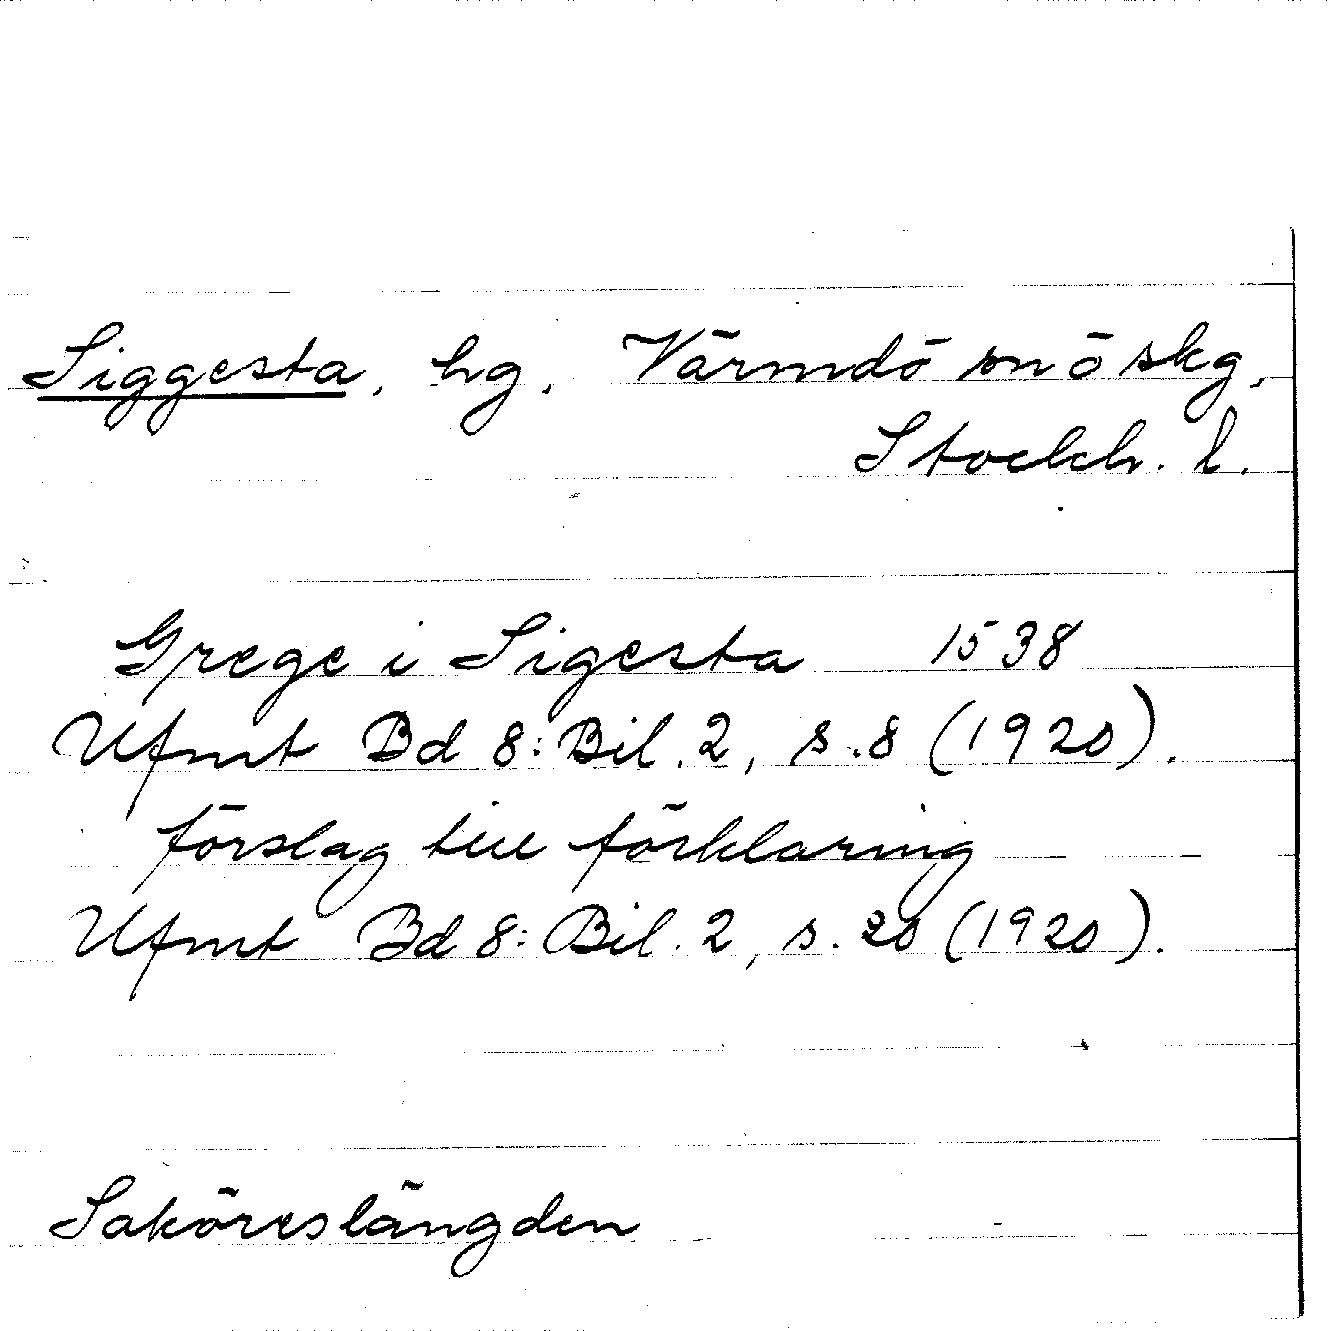 Siggesta, hg. Värmdö sn ö skg,
Stockh. l.
Grege i Sigesta 1538
Ufmt Bd 8: Bil. 2, s. 8 (1920).
förslag till förklaring
Ufmt Bd 8: Bil. 2, s. 20 (1920).
Saköreslängden